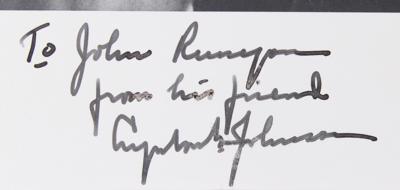 To John Runyon
from his friend
Lyndon B. Johnson